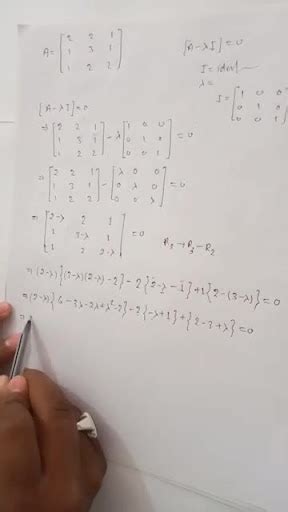 A = [2 2 1; 1 3 1; 1 2 2]
[A-λI] = 0
I =
λ =
I = [1 0 0; 0 1 0; 0 0 1]
[A-λI] = 0
⇒ [2 2 1; 1 3 1; 1 2 2] - λ [1 0 0; 0 1 0; 0 0 1] = 0
⇒ [2 2 1; 1 3 1; 1 2 2] - [λ 0 0; 0 λ 0; 0 0 λ] = 0
⇒ [2-λ 2 1; 1 3-λ 1; 1 2 2-λ] = 0
R₃→R₃-R₂
⇒ (2-λ){(3-λ)(2-λ)-2} - 2{2-λ-1} + 1{2-(3-λ)} = 0
⇒ (2-λ){6-3λ-2λ+λ²-2} - 2{-λ+1} + {2-3+λ} = 0
⇒